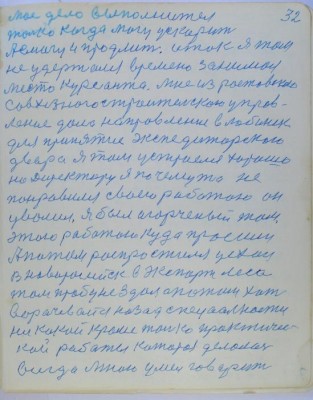 32
мое дело выполнится
только когда могу ускорит
а могу и продлит. и так я там
не удержался времено занимая
место курсанта. мне из ростовско
совхозного строитьльского упров-
ление дали направление в любинск
для принятие экспедиторского
двара я там устраился хорошо
но директору я почемуто не
понравился своею работаю он
уволил. я был агорченый там
этого работаю куда просили
а потам роспростился уехал
в новоросийск в экспорт леса
там пробу не здал а потам хат
ворачевайся назад специалности
ни какий кроме толко практичи-
кой работа которая делолась
всегда мною умел говорит